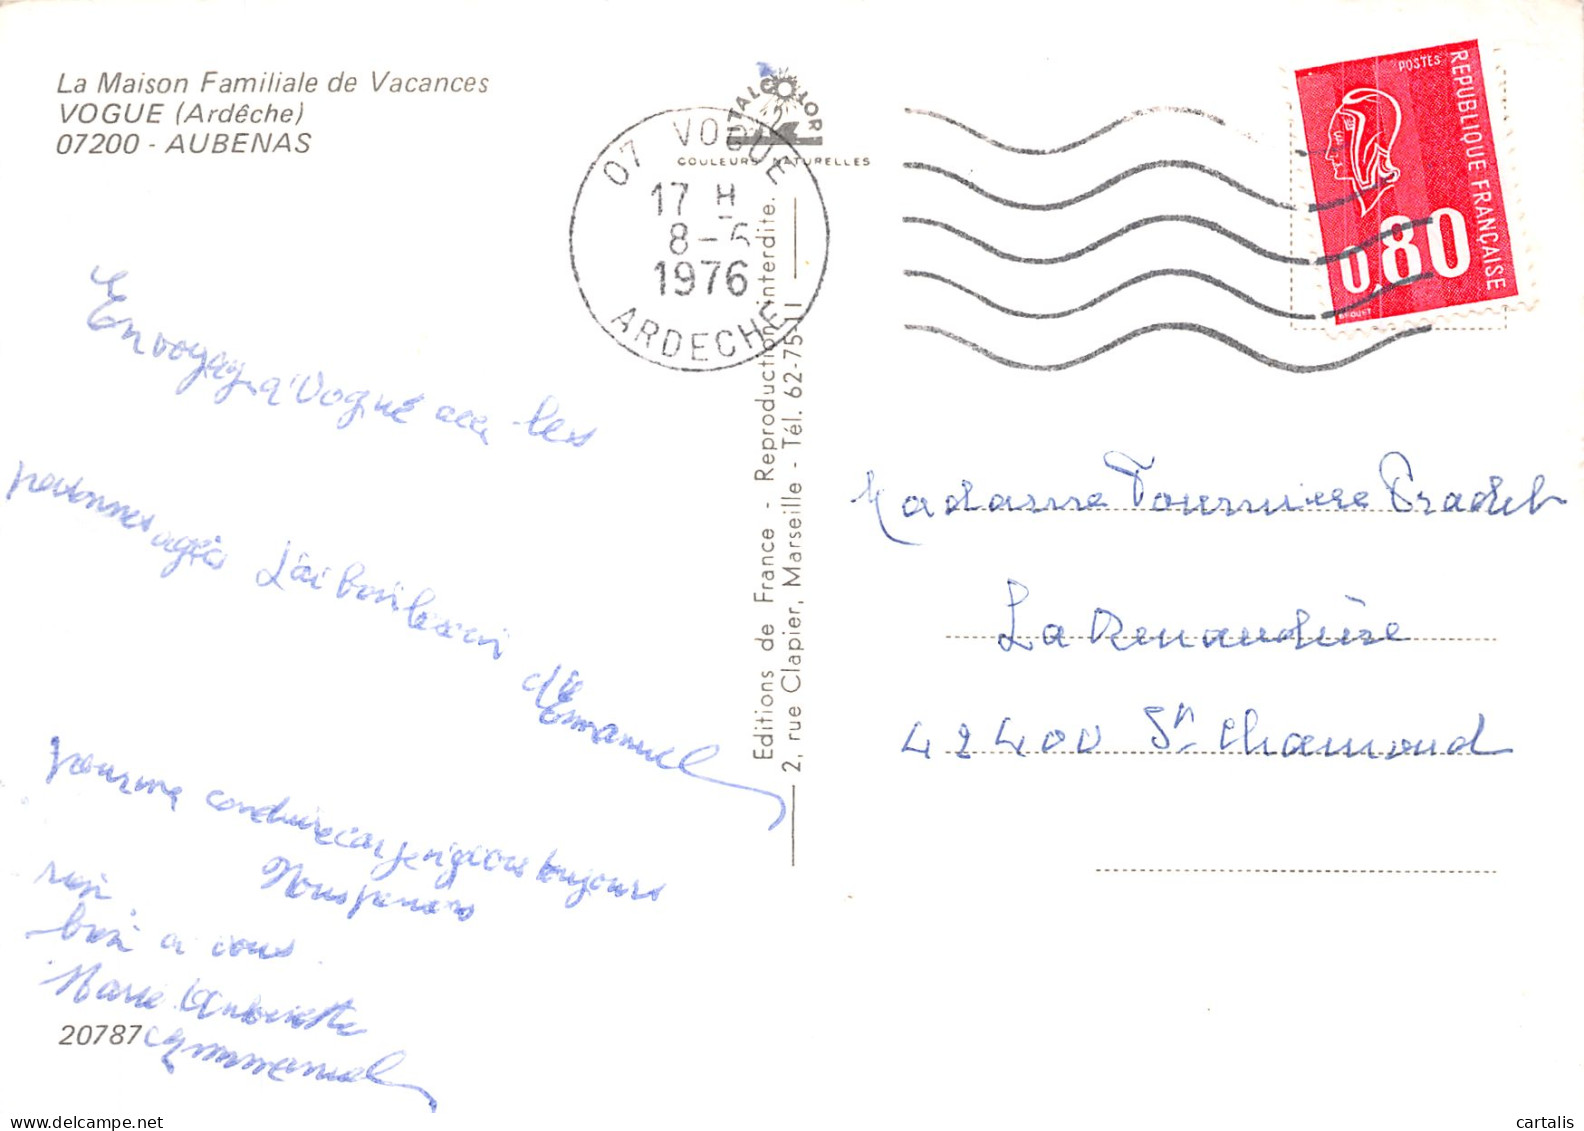 La Maison Familiale de Vacances
VOGUE (Ardêche)
07200 - AUBENAS
TALCOLOR
COULEURS NATURELLES
07 VOGUE
17 H
8-6
1976
ARDECHE
POSTES
REPUBLIQUE FRANÇAISE
0,80
En voyage a Vogué avec les
personnes agés J'ai besoin
d'Emmanuel
pour me conduire car je n'y vois toujours
rien Nous pensons
bien a vous
Marie Antoinette
Emmanuel
20787
Editions de France - Reproduction interdite.
2, rue Clapier, Marseille - Tél. 62-75-11
Madame Fournier Pradel
La Renaudière
42400 St Chamond
cartalis